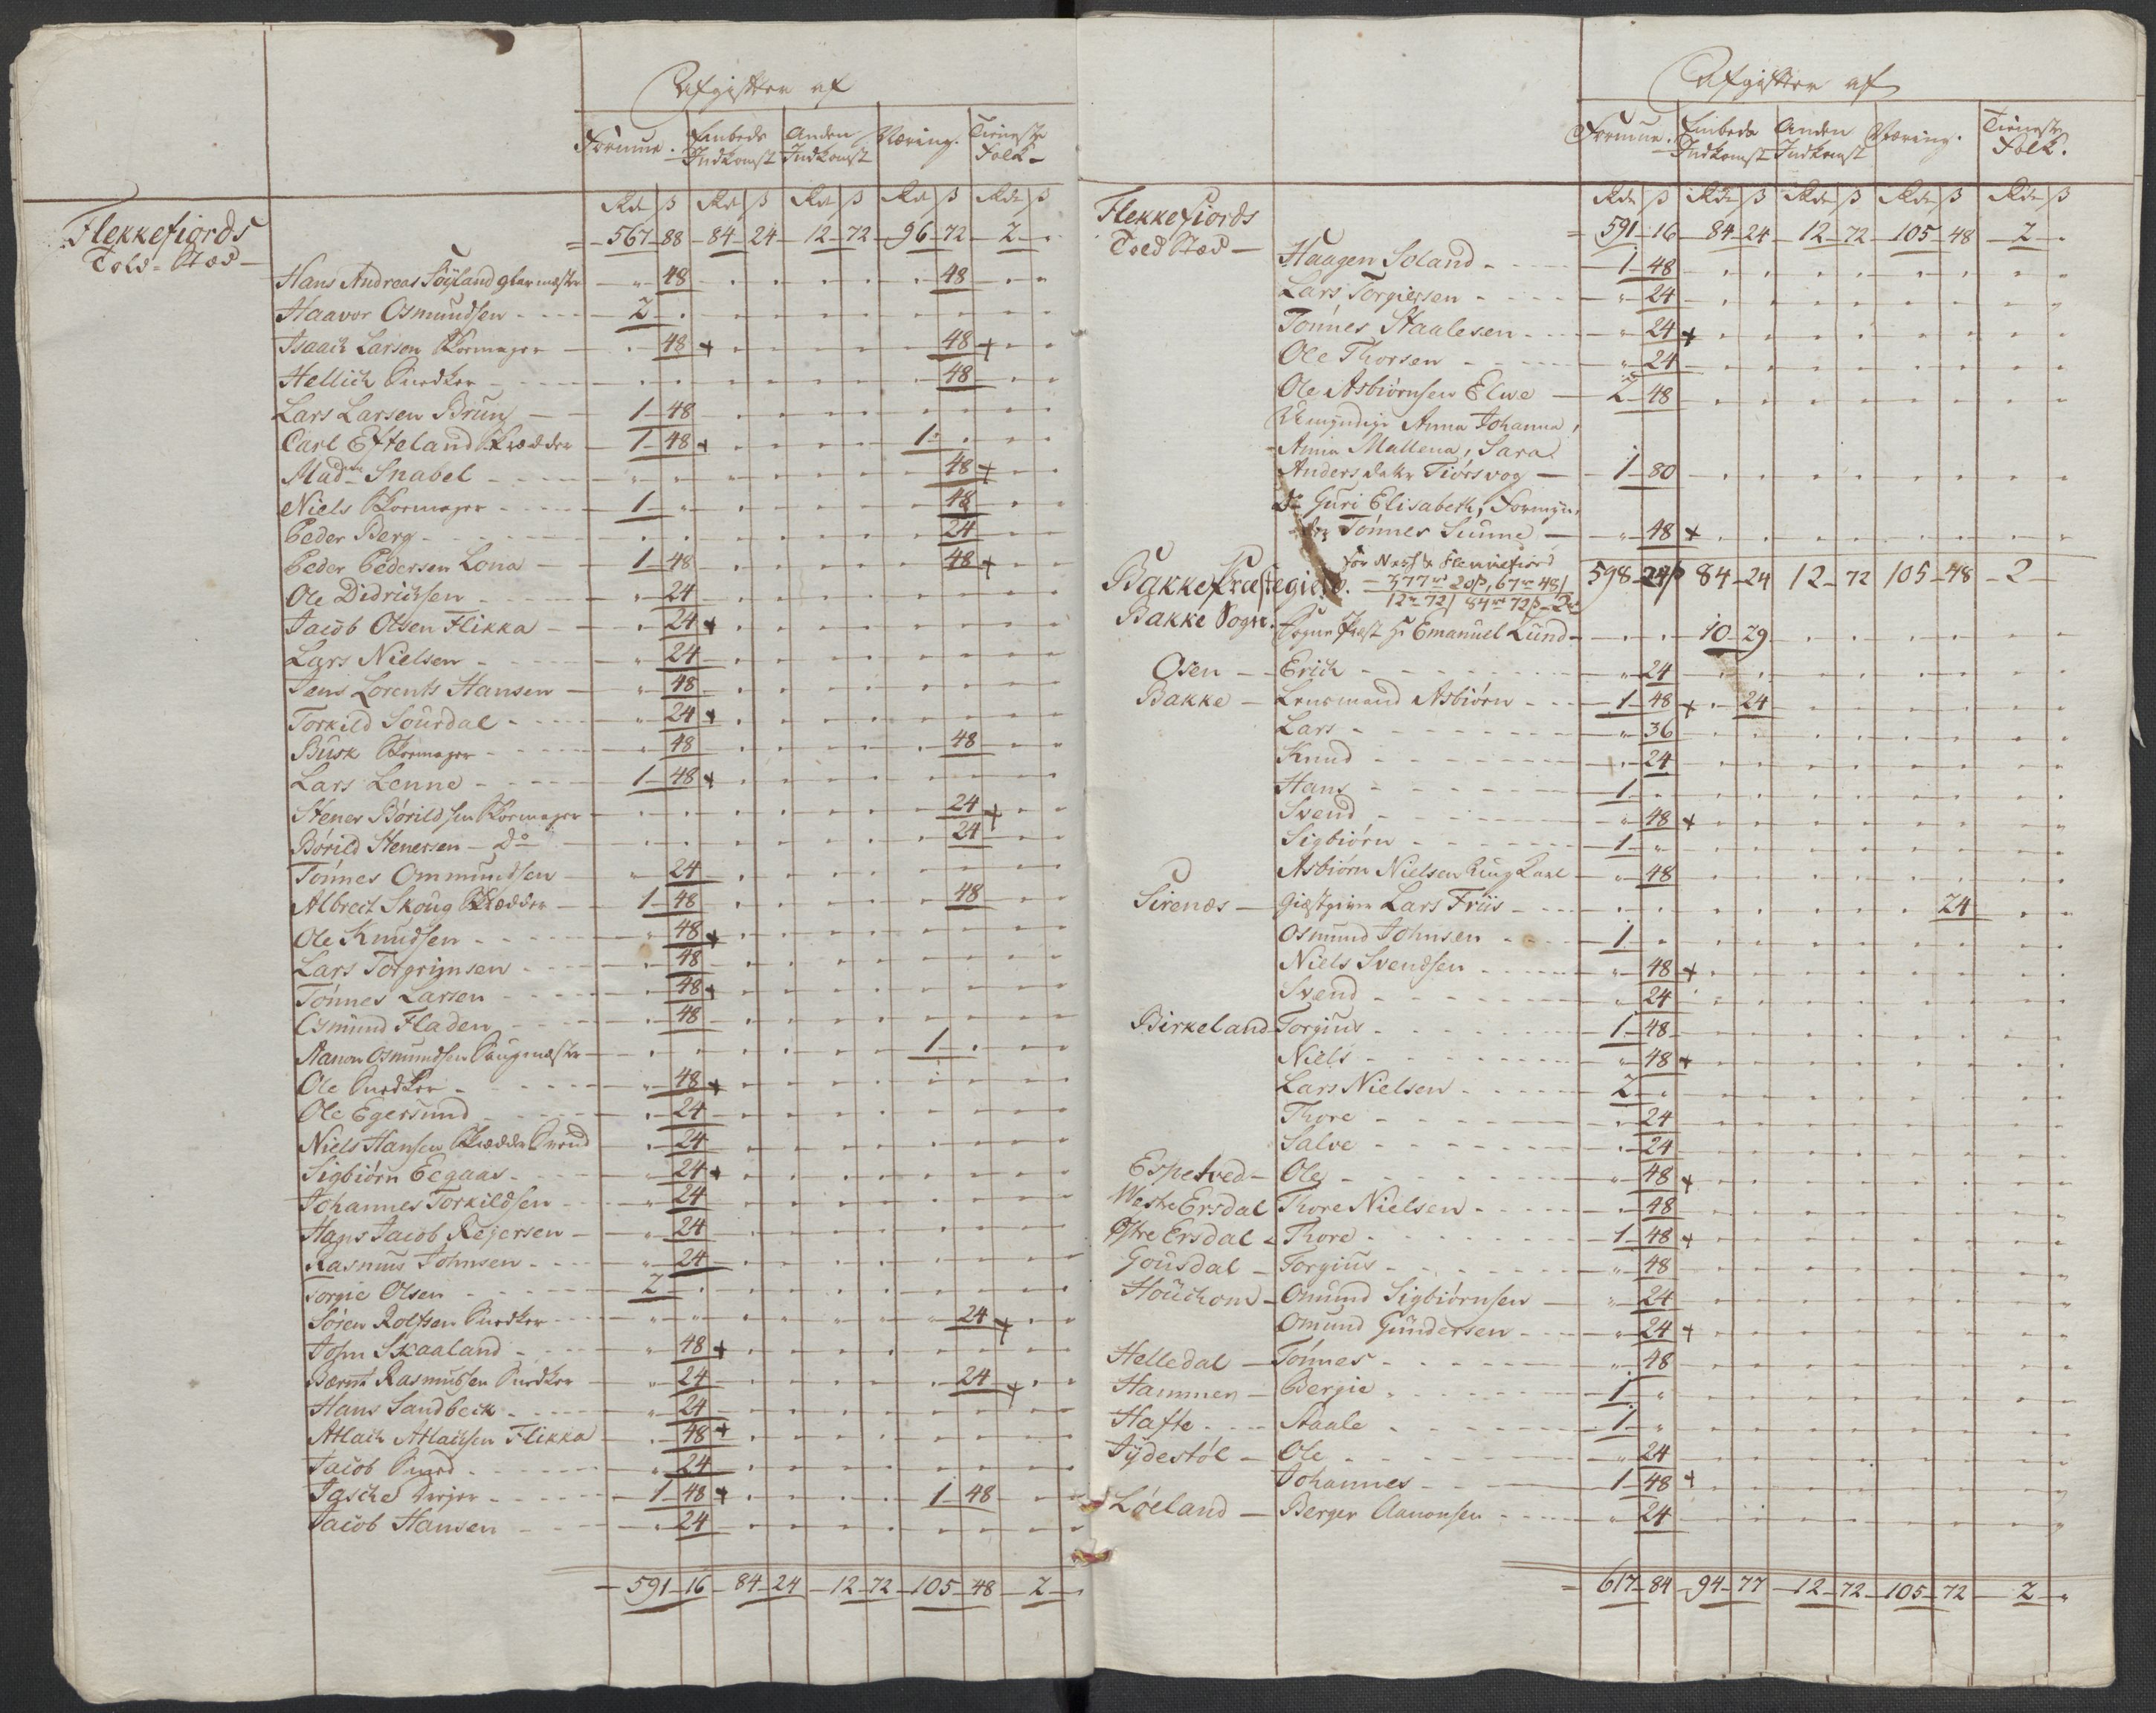 Afgivten af
Formue. Embeds Indkomst Anden Indkomst Næring. Tieneste Folk
Rd ß Rd ß Rd ß Rd ß Rd ß
Flekkefiords Told-Stæd — 567 88 84 24 12 72 96 72 2 "
Hans Andreas Söyland Glarmæster 48 48
Haavor Osmundsen 2
Isaach Larsen Skomager 48 + 48 +
Hellich Snedker 48
Lars Larsen Brun 1 48
Carl Efteland Skrædder 1 48 + 1
Madm Snabel 48 +
Niels Skomager 1 48
Peder Berg 24
Peder Pedersen Lona 1 48 48 +
Ole Didrichsen 24
Jacob Olsen Flikka 24 +
Lars Nielsen 24
Jens Lorents Hansen 48
Torkild Sourdal 24 +
Busk Skomager 48 48
Lars Lenne 1 48 +
Stener Börildsen Skomager 24 +
Börild Stenersen Do 24
Tönnes Ommundsen 24
Albrect Skoug Skrædder 1 48 48
Ole Knudsen 48 +
Lars Torgrimsen 48
Tönnes Larsen 48 +
Osmund Fladen 48
Aanon Osmundsen 1
Ole Snedker 48 +
Ole Egersund 24
Niels Hansen Skrædder Svend 24
Sigbiörn Eegaas 24 +
Johannes Torkildsen 24
Hans Jacob Rejersen 24
Rasmus Johnsen 24
Torgie Olsen 2
Sören Rolfsen Snedker 24 +
John Skaaland 48 +
Bærnt Rasmussen Snedker 24 24 +
Hans Sandbeck 24
Atlach Atlachsen Flikka 48 +
Jacob Smed 24
Jasche 1 48 + 1 48
Jacob Hansen 24
591 16 84 24 12 72 105 48 2
Afgivten af
Formue. Embeds Indkomst Anden Indkomst Næring. Tieneste Folk.
Rdr ß Rdr ß Rdr ß Rdr ß Rdr ß
Flekkefiords Told Stæd — 591 16 84 24 12 72 105 48 2
Haagen Soland 1 48
Lars Torgiersen 24
Tönnes Staalesen 24 +
Ole Thorsen 24
Ole Asbiörnsen Elwe 2 48
Umyndige Anna Johanna,
Anna Mallena, Sara
Anders datter Tiörsvog 1 80
Do Guri Elisabeth, Formyn-
der Tönnes Suune 48 +
for Næs & Fennefiord
Bakke Præstegield. 377 20ß, 67 48 598 24ß 84 24 12 72 105 48 2
12 72 84 72ß
Bakke Sogn. Sogne Præst Hr Emanuel Lund 10 29
Osen Erich 24
Bakke Lensmand Asbiörn 1 48 + 24
Lars 36
Knud 24
Hans 1
Svend 48 +
Sigbiörn 1
Asbiörn Nielsen 48
Sirenæs Giæstgiver Lars Friis 24
Osmund Johnsen 1
Niels Svendsen 48 +
Svend 24
Birkeland Torgius 1 48
Niels 48 +
Lars Nielsen 2
Thore 24
Salve 24
Espetved Ole 48 +
Westre Ersdal Thore Nielsen 48
Østre Ersdal Thore 1 48 +
Gousdal Torgius 48
Houchom Omund Sigbiörnsen 24
Omund Gundersen 24 +
Helledal Tönnes 48
Hammer Bergie 1
Hafte Staale 1
Tydestöl Ole 24
Johannes 1 48 +
Löeland Berger Aanonsen 24
617 84 94 77 12 72 105 72 2